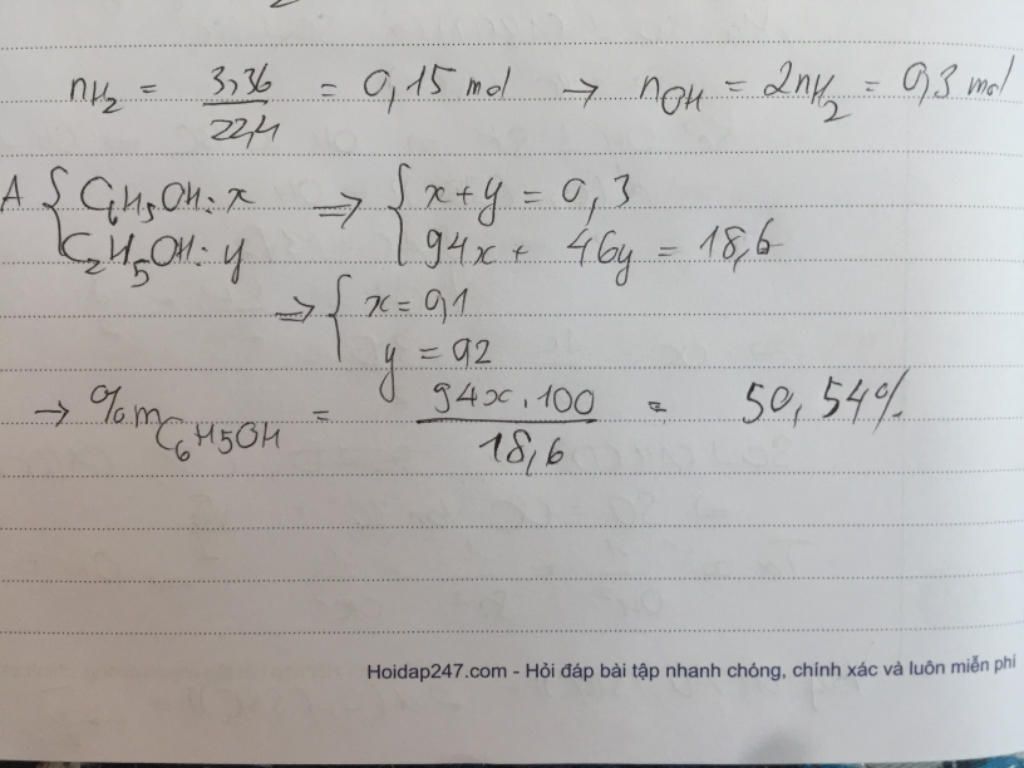 nH₂ = 3,36/22,4 = 0,15 mol → nOH = 2nH₂ = 0,3 mol
A { C₆H₅OH: x ⇒ { x + y = 0,3
C₂H₅OH: y 94x + 46y = 18,6
⇒ { x = 0,1
y = 0,2
→ %m C₆H₅OH = 94x.100/18,6 = 50,54%
Hoidap247.com - Hỏi đáp bài tập nhanh chóng, chính xác và luôn miễn phí